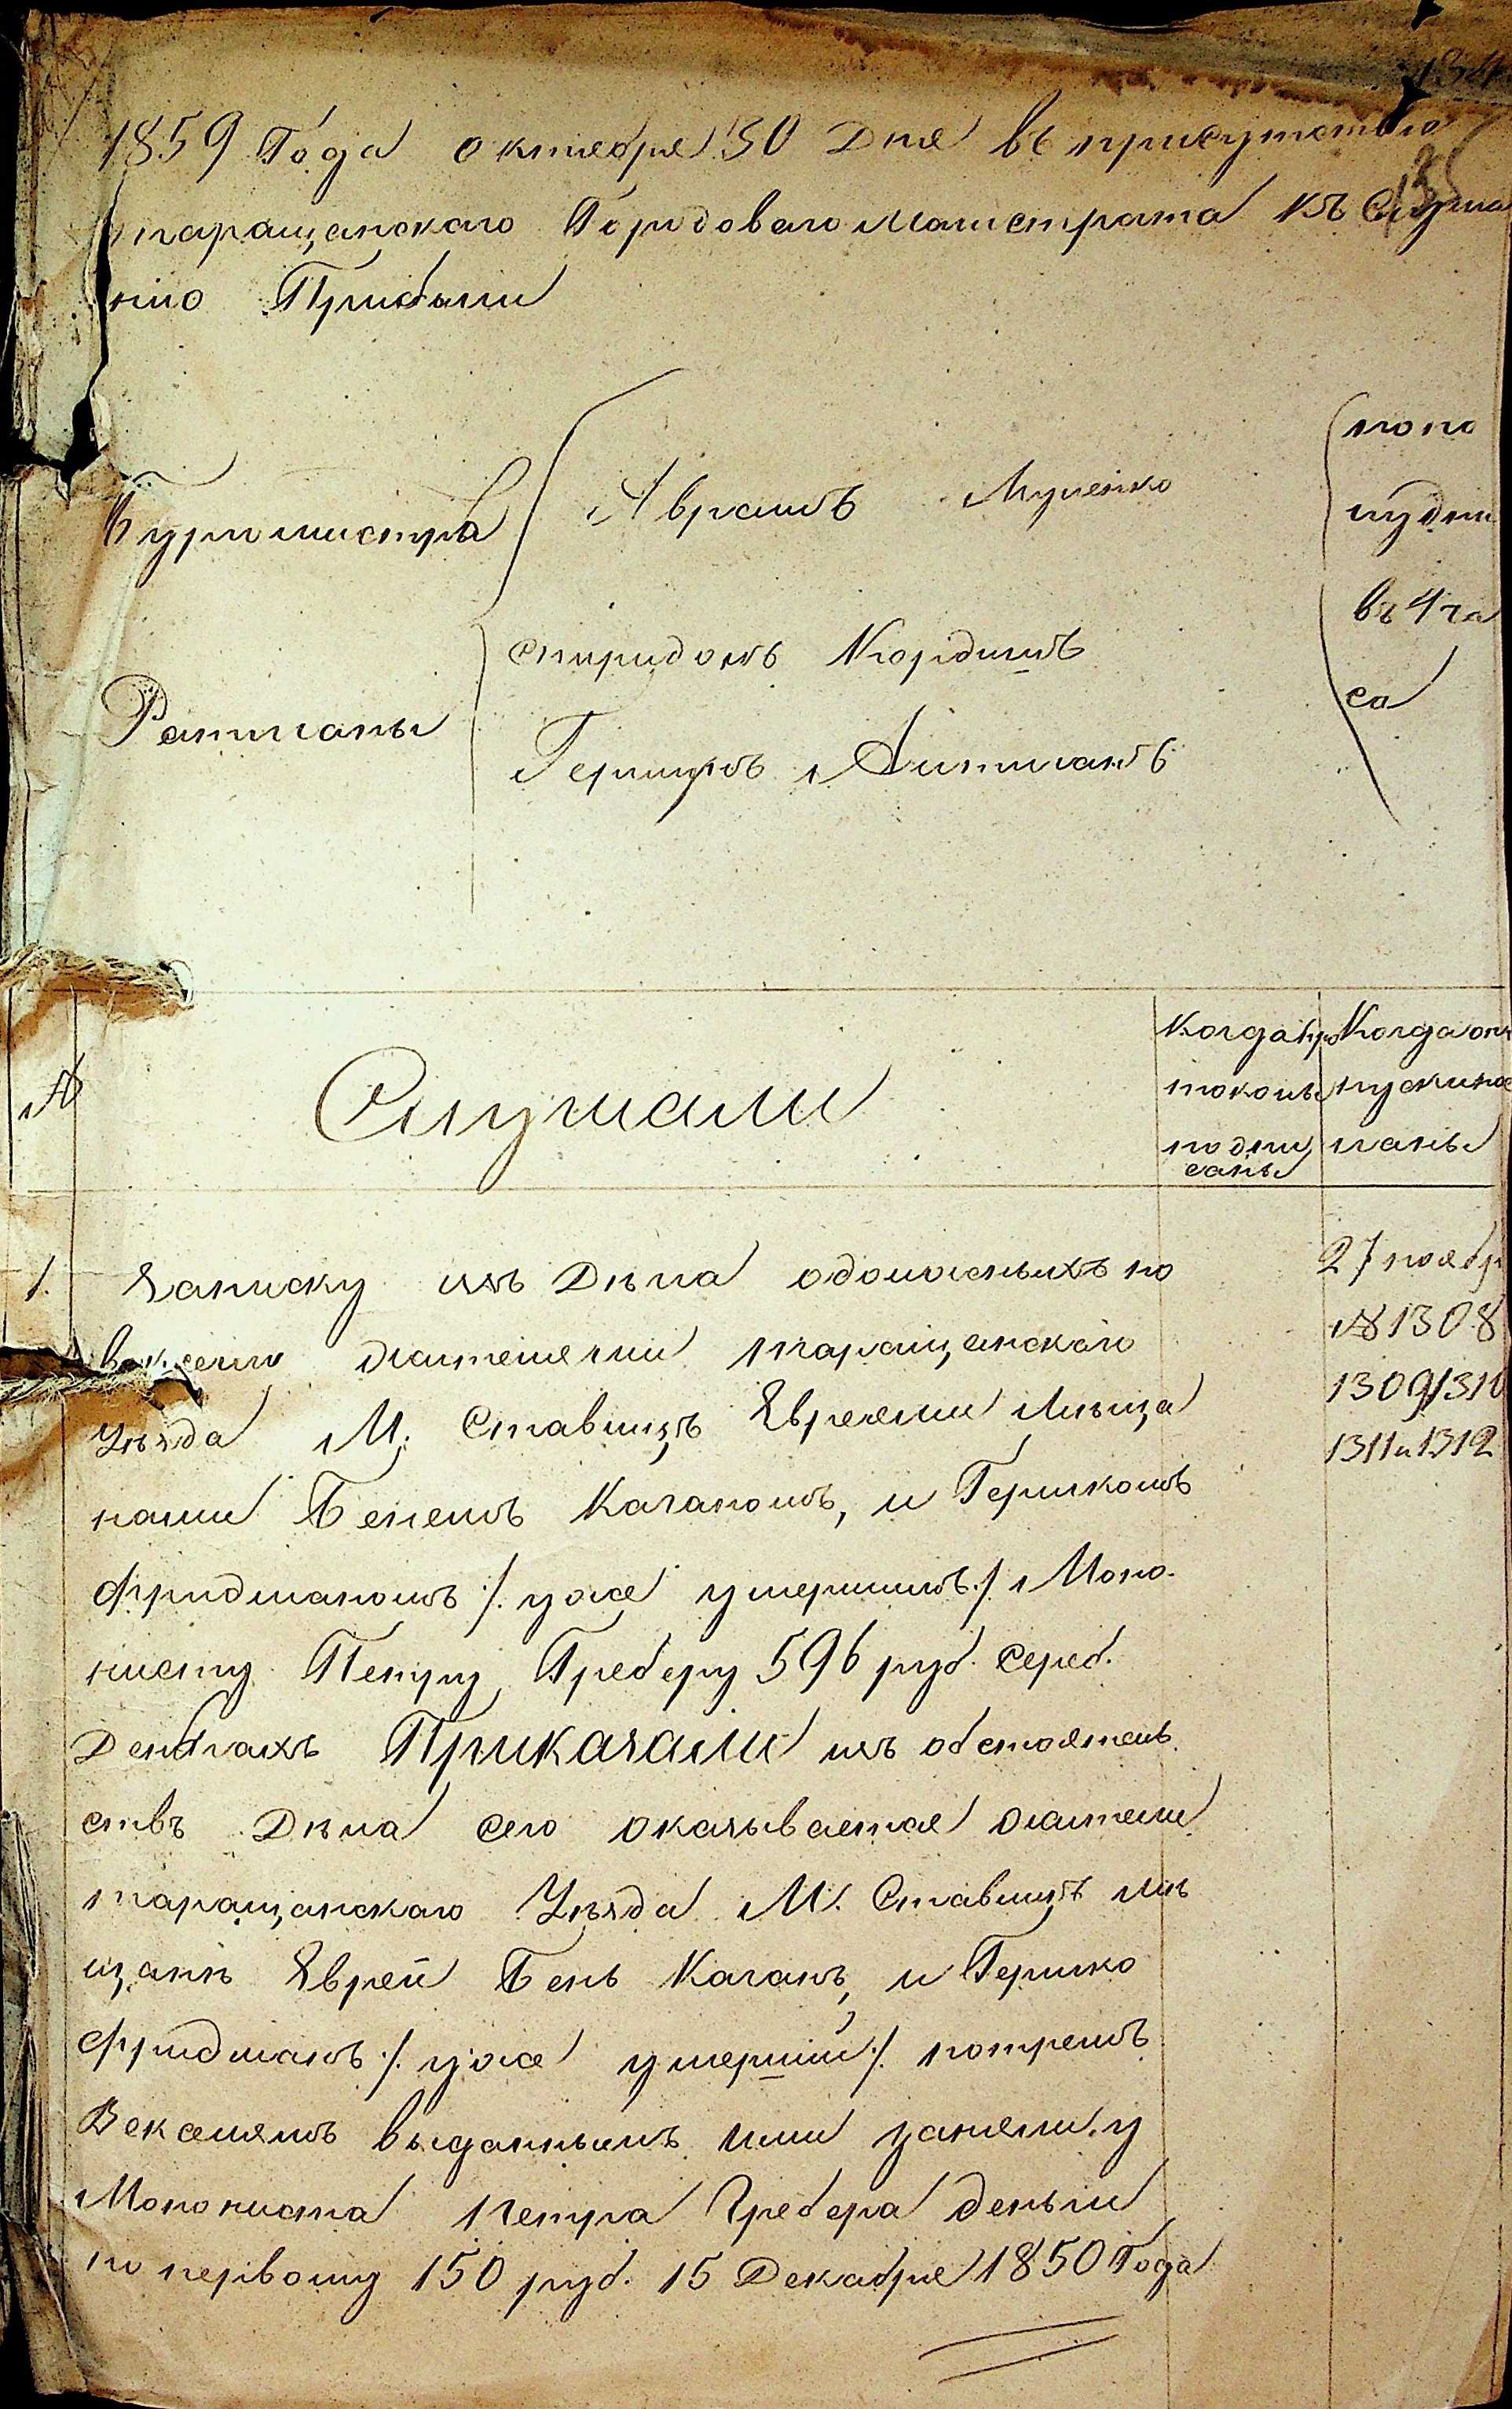 1859 Года октебря 30 Дня въ присутствіе
таращанскаго Городоваго Магистрата къ Слуша
нію Прибыли
Бургомистръ
Аврамъ
Ратманы
Спиридонъ Кордишъ
Литманъ
по по
въ 4 ча
са
№
Слушали
Когда про
токолы
подпи
саны
Когда от
мѣчаны
1. Записку изъ Дѣла одолженыхъ по
жителями таращанскаго
Уѣзда М. Ставищъ Евреями Мѣща
нами Бенемъ Каганомъ, и Гершкомъ
Фридманомъ /. уже умершимъ ./ Коло
нисту Петру Греберу 596 руб. Сереб.
Деньгахъ Приказали изъ обстоятель
ствъ Дѣла сего оказывается жители
таращанскаго Уѣзда М. Ставищъ мѣ
щане Евреи Бень Каганъ, и Гершко
Фридманъ /. уже умершій ./ потремъ
Векселямъ выданнымъ ими заняли у
Колониста Петра Гребера деньги
по первому 150 руб. 15 Декабря 1850 Года
27 ноябр
№ 1308
1309 1310
1311 и 1312